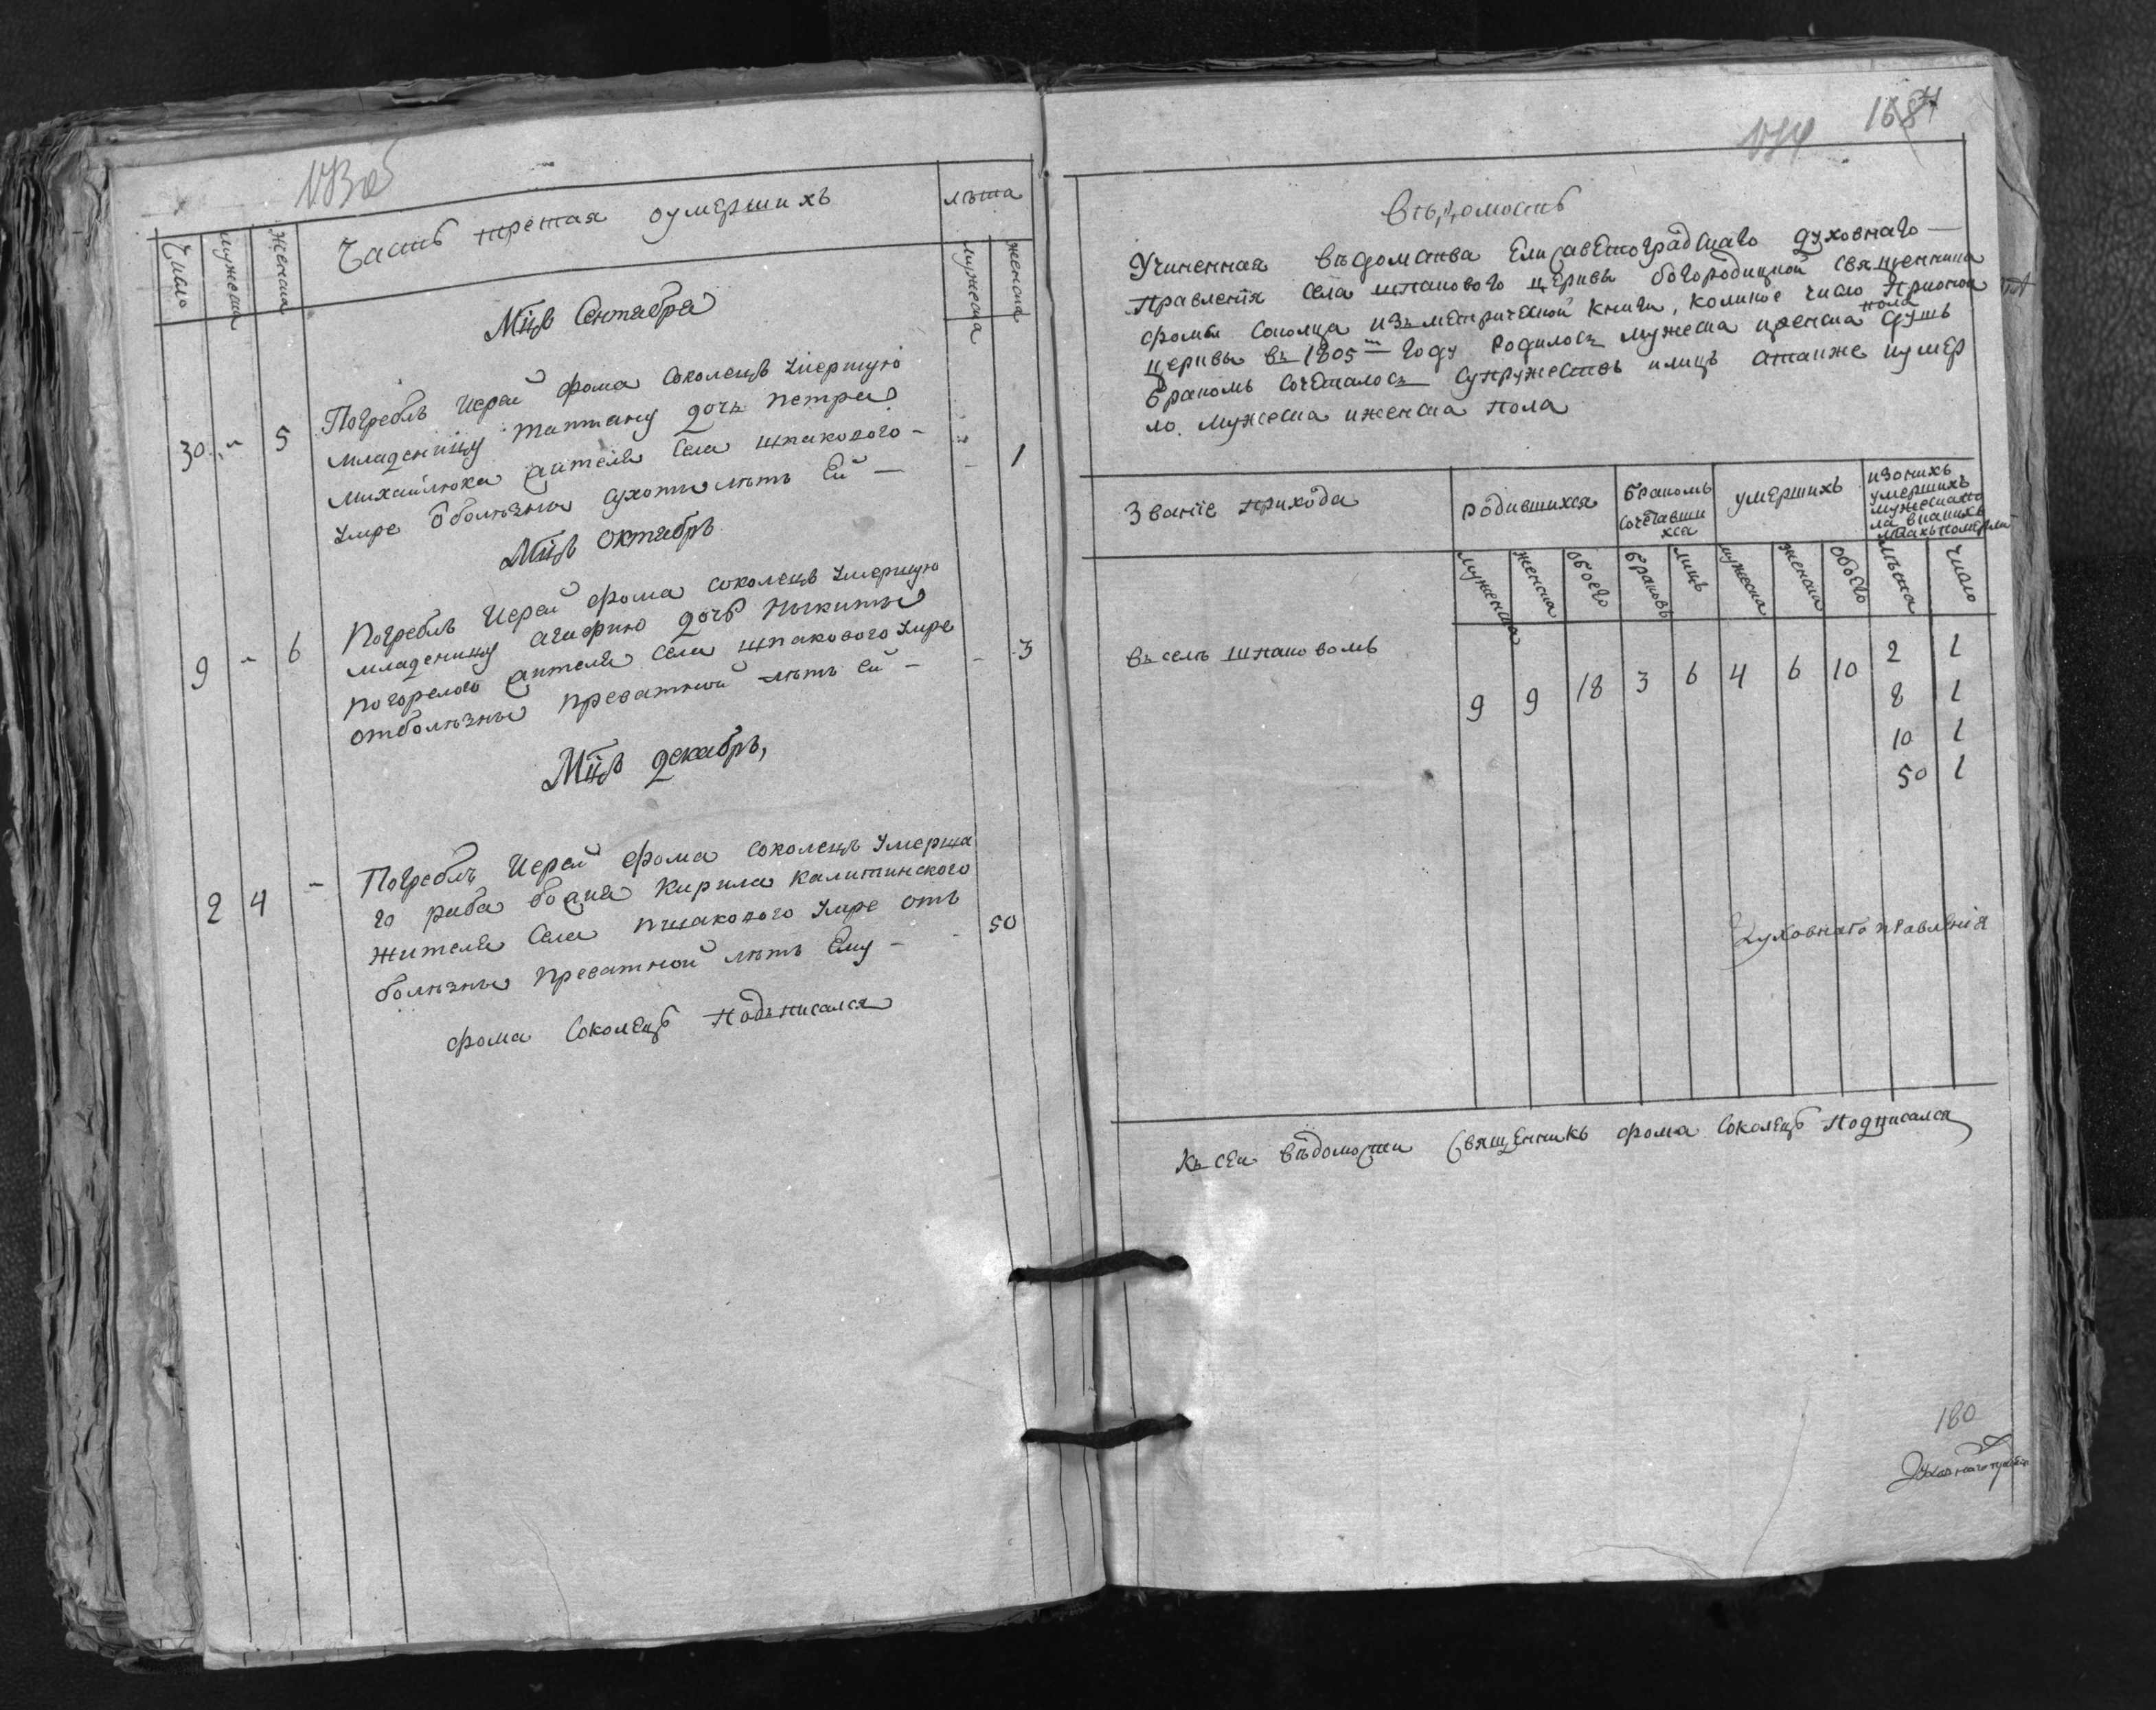 Часть третая оумершихъ
лѣта
Число
мужеска
женска
мужеска
женска
Мцъ Сентябра
Погребль Иерей фома Соколецъ Умершую
младеницу татяну дочь петра
30 - 5 Михайлюка жителя Села шпакового - - 1
Умре Оболѣзны Сухоты лѣтъ Ей -
Мцъ Октябръ
Погребль Иерей фома соколецъ Умершую
младеницу агафию дочь Ныкиты
9 - 6 погорелого жителя Села шпакового Умре - 3
отболѣзны преватной лѣтъ ей -
Мцъ декабръ,
Погреблъ Иерей фома Соколецъ Умерша
2 4 - го раба божия Кирила Калитинского
жителя Села пшакового Умре отъ
болѣзны преватной лѣтъ Ему - - 50
фома Соколецъ Подьписался
174
Вѣдомость
Учиненная вѣдомства Елисаветоградскаго духовнаго
Правленїя Села шпакового церквы богородицкой священника
фомы Соколца изъ метрической книги, коликое число При оной
церквы въ 1805 году родилось мужеска иженска пола душъ
бракомъ сочеталось супружествъ илицъ атакже иумер
ло мужеска иженска пола
Званїе прихода
родившихся
бракомъ
сочетавши
хся
умершихъ
изонихъ
умершихъ
мужеска по
ла вкакихъ
мужеска
женска
обоего
браковъ
лицъ
мужеска
женска
обоего
лѣта
число
въ селѣ Шпаковомъ
9 9 18 3 6 4 6 10 2 1
8 1
10 1
50 1
Духовнаго правленїя
Къ сеи вѣдомости Священникъ фома Соколецъ Подписался
180